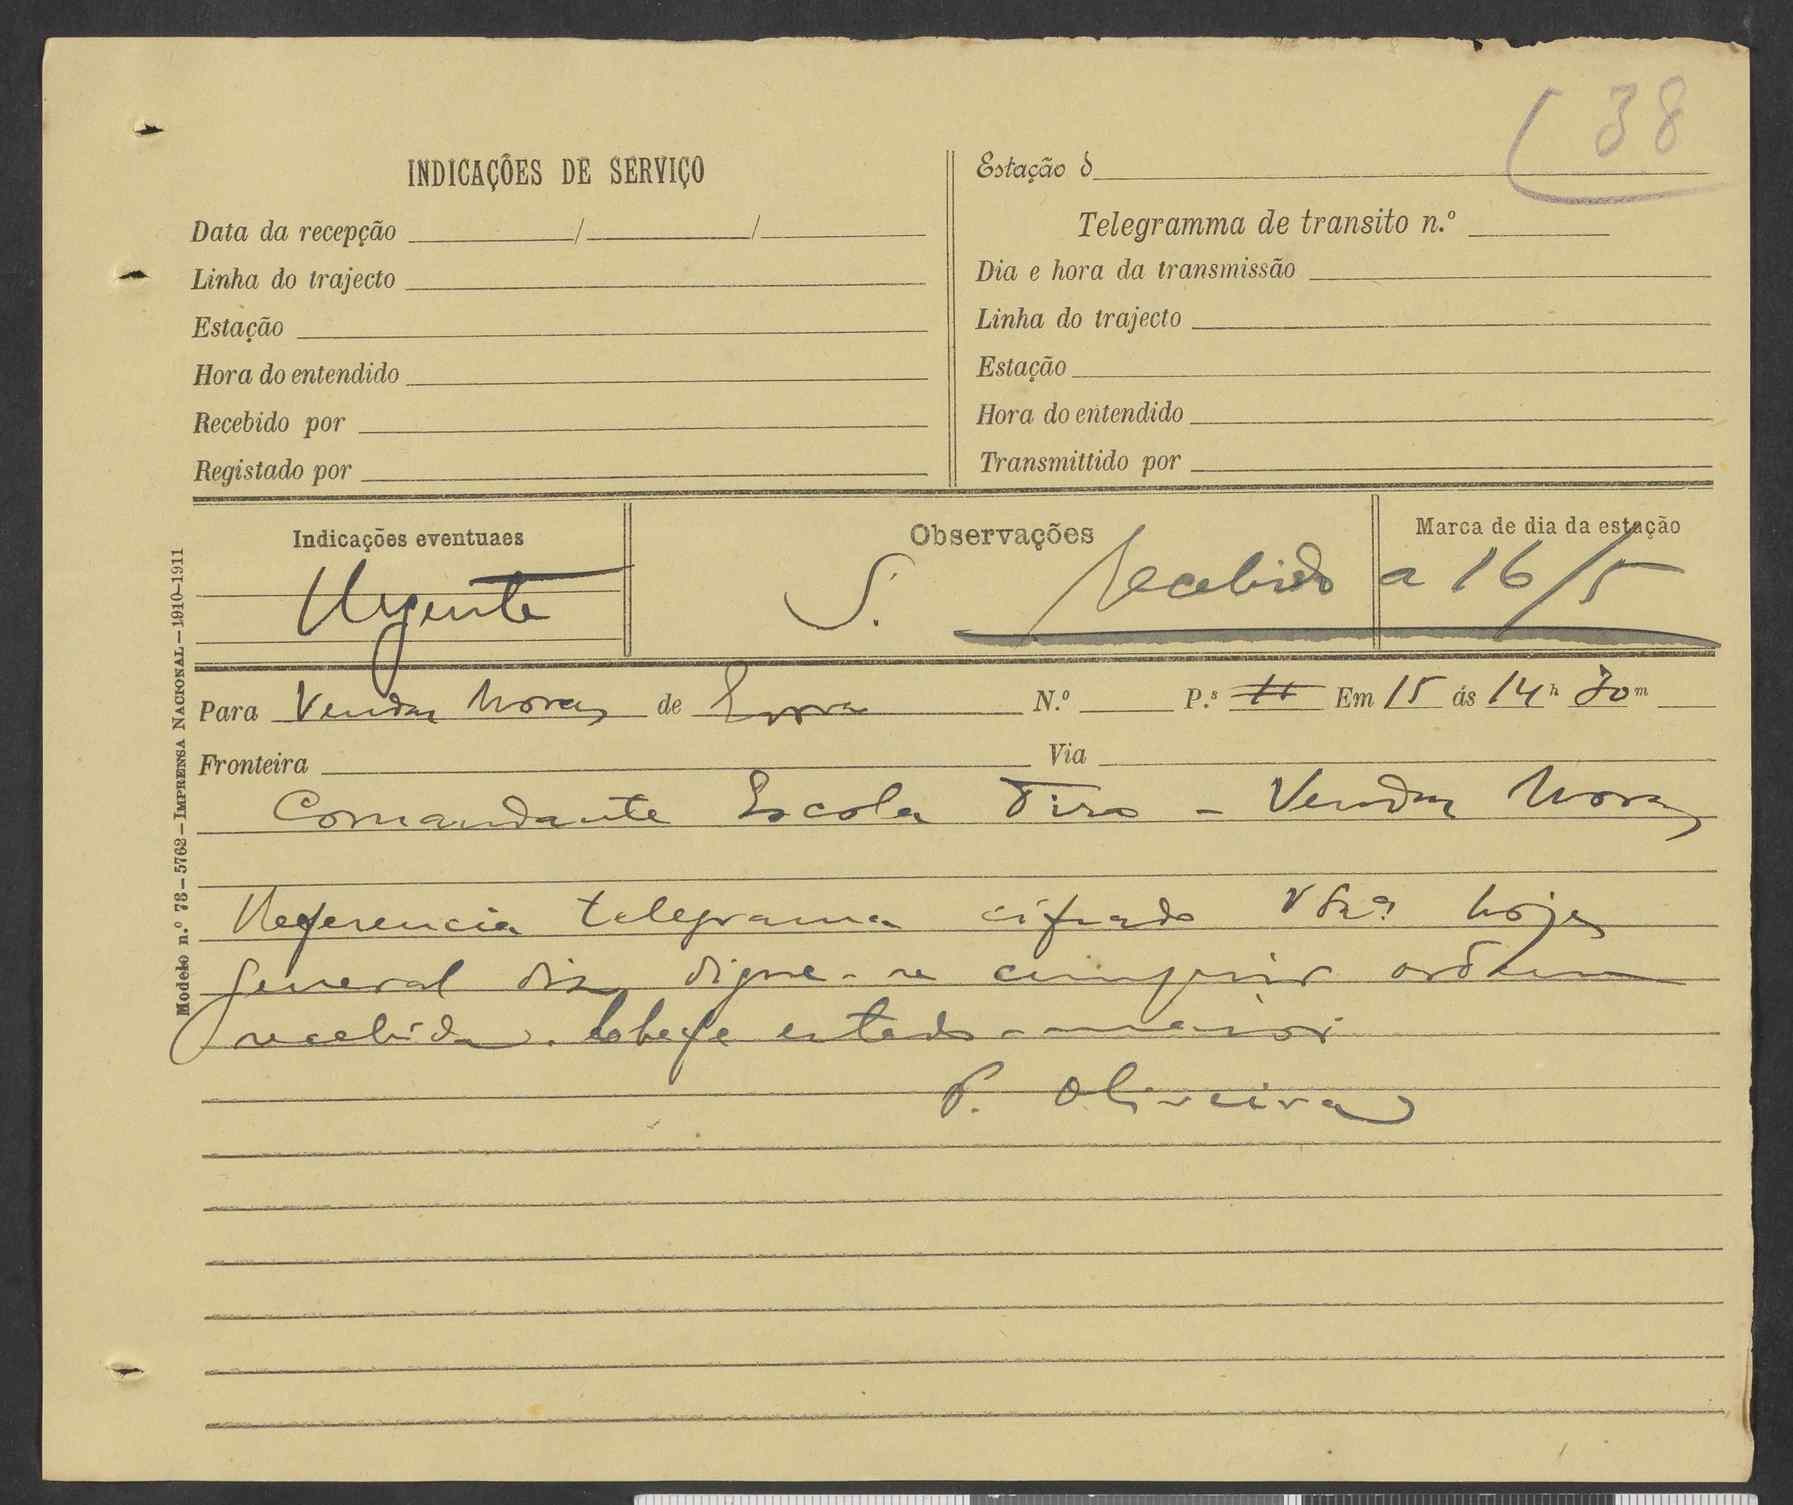 38
INDICAÇÕES DE SERVIÇO
Data da recepção / /
Linha do trajecto
Estação
Hora do entendido
Recebido por
Registado por
Estação d
Telegramma de transito n.º
Dia e hora da transmissão
Linha do trajecto
Estação
Hora do entendido
Transmittido por
Indicações eventuaes
Urgente
Observações
S.
Marca de dia da estação
Recebido a 16/5
Modelo n.º 73–5762–IMPRENSA NACIONAL–1910–1911
Para Vendas Novas de Evora N.º P.s Em 15 ás 14 h 30 m
Fronteira Via
Comandante Escola Tiro – Vendas Novas
Referencia telegrama cifrado V Exª hoje
general diz digne-se cumprir ordem
recebida. Chefe estado-maior
P. Oliveira